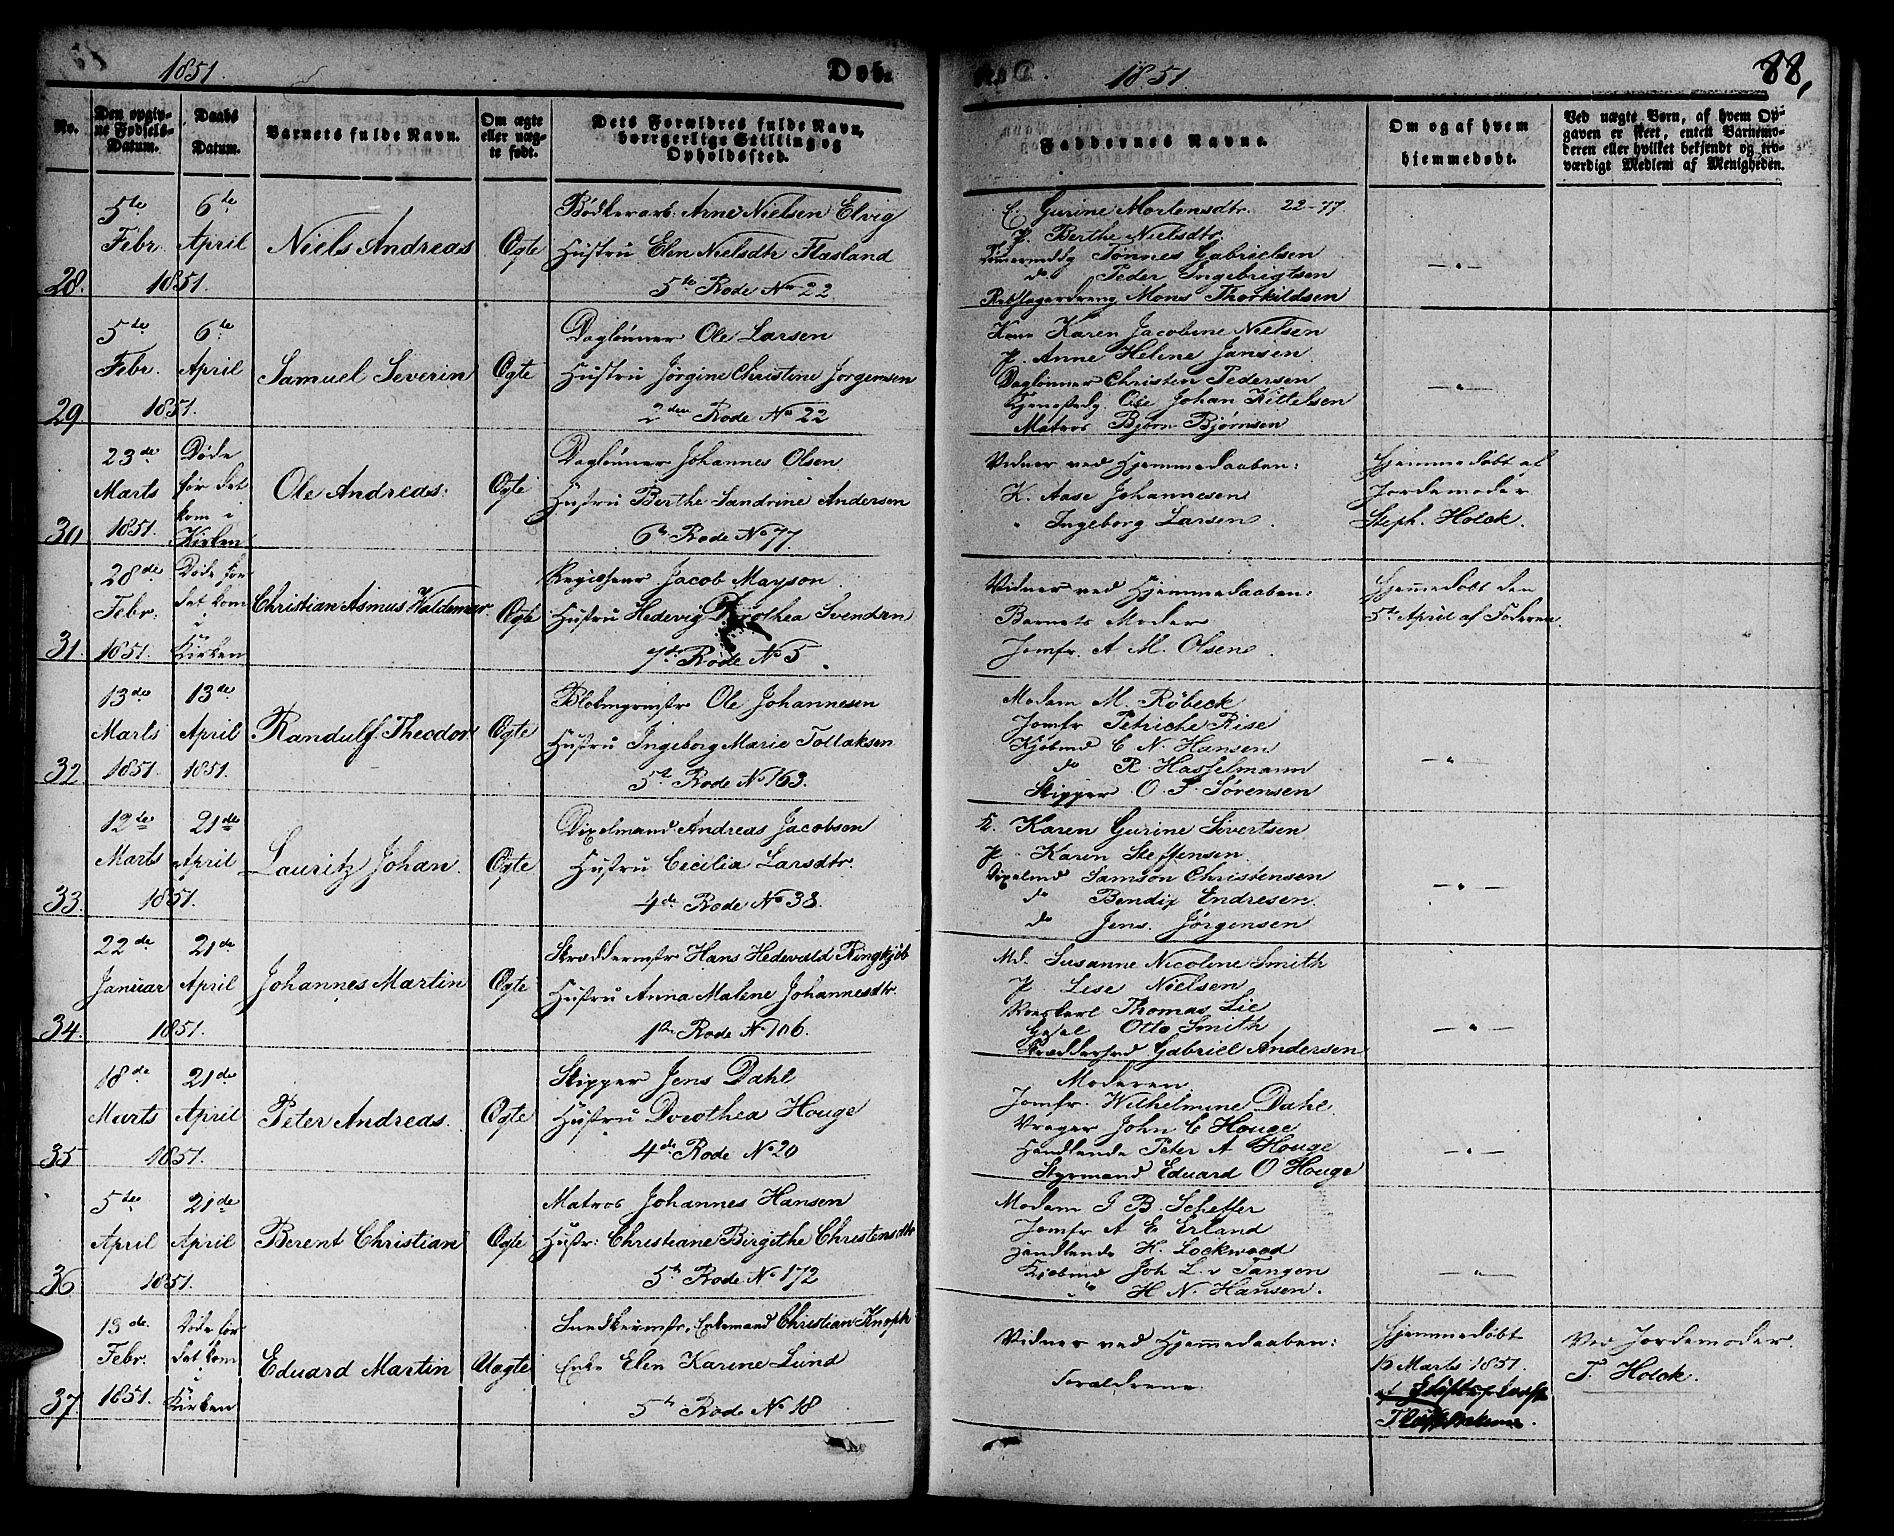 1851. Døb.
No.
Den opgiv-
ne Fødsels-
Datum.
Daabs
Datum.
Barnets fulde Navn.
Om ægte
eller uæg-
te født.
Dets Forældres fulde Navn,
borgerlige Stilling og
Opholdssted.
28.
5te Febr.
6te April
1851.
Niels Andreas
Ægte
Bødkerarb: Arne Nielsen Elvig
Hustru Elen Nielsdtr Flæsland
5te Rode No 22
29
5te Febr.
6te April
1851.
Samuel Severin
Ægte
Daglønner Ole Larsen
Hustru Jørgine Christine Jørgensen
2den Rode No 22
30
23de Marts
1851.
Døde
før det
kom i
Kirken
Ole Andreas.
Ægte
Daglønner Johannes Olsen
Hustru Berthe Sandrine Andersen
6te Rode No 77.
31.
28de Febr.
1851.
Døde før
det kom
i
Kirken
Christian Asmus Valdemar
Ægte
Regisseur Jacob Mayson
Hustru Hedevig Dorothea Svendsen
7de Rode No 5.
32.
13de Marts
1851.
13de April
1851.
Randulf Theodor
Ægte
Ole Johannesen
Hustru Ingeborg Marie Tollaksen
5te Rode No 163.
33.
12te Marts
21de April
1851.
Lauritz Johan.
Ægte
Andreas Jacobsen
Hustru Cecilia Larsdtr.
4de Rode No 38.
34.
22de Januar
21de April
1851.
Johannes Martin
Ægte
Skreddermstr Hans Hedevald Ringkjöb
Hustru Anna Malene Johannesdtr.
1ste Rode No 106.
35
18de Marts
21de April
1851.
Peter Andreas.
Ægte
Skipper Jens Dahl
Hustru Dorothea Houge
4de Rode No 20
36
5te April
21de April
1851.
Berent Christian
Ægte
Matros Johannes Hansen
Hustr: Christiane Birgithe Christensdtr
5te Rode No 172
37.
13de Febr.
1851.
Døde før
det kom
i
Kirken
Eduard Martin
Uægte
Snedkermstr. Enkemand Christian Knoph
Enke Elen Karine Lund
5te Rode No 18
1851. 88,
Faddernes Navne.
Om og af hvem
hjemmedøbt.
Ved uægte Børn, af hvem Op-
gaven er skeet, enten Barnemo-
deren eller hvilket bekjendt og tro-
værdigt Medlem af Menigheden.
Gurine Mortensdtr. 22-77
P. Berthe Nielsdtr.
Tønnes Gabrielsen
do Peder Ingebrigtsen
Rebslagerdreng Mons Thorkildsen
Kone Karen Jacobine Nielsen
P. Anne Helene Jansen
Daglønner Christen Pedersen
Ole Johan Kittelsen
Matros Bjørn Bjørnsen
Vidner ved Hjemmedaaben:
K. Aase Johannesen
" Ingeborg Larsen.
Hjemmedøbt af
Jordemoder
Steph. Holck.
Vidner ved Hjemmedaaben:
Barnets Moder
Jomfr. A M. Olsen.
Hjemmedøbt den
5te April af Faderen.
Madam M. Røbeck
Jomfr Petriche Rise
Kjøbmd C N. Hansen
do R. Hasselmann
Skipper O. F. Sørensen
K. Karen Gurine Sivertsen
P. Karen Steffensen
Samson Christensen
do Bendix Endresen.
do Jens Jørgensen
Md. Susanne Nicoline Smith
P Lise Nielsen
Thomas Lie
Otto Smith
Gabriel Andersen
Moderen.
Jomfr. Wilhelmine Dahl.
Vrager John C Houge
Handlende Peter A Houge
Styrmand Eduard O Houge
Madam J B. Scheffer
Jomfr A E Erland
Handlende H. Lockwood
Kjøbmd Joh L. v Tangen
do H N. Hansen.
Vidner ved Hjemmedaaben:
Forældrene
Hjemmedøbt
15 Marts 1851.
Ved Jordemoder
T. Holck.